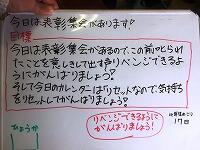 今日は表彰集会があります!
目標
今日は表彰集会があるので、この前やられ
たことを意しきして出すぎリベンジできるよ
うにがんばりましょう!
そして今日のカレンダーはリセットなんで、気持ち
をリセットしてがんばりましょう!
リベンジできるように
がんばりましょう!
17日
ひょうか